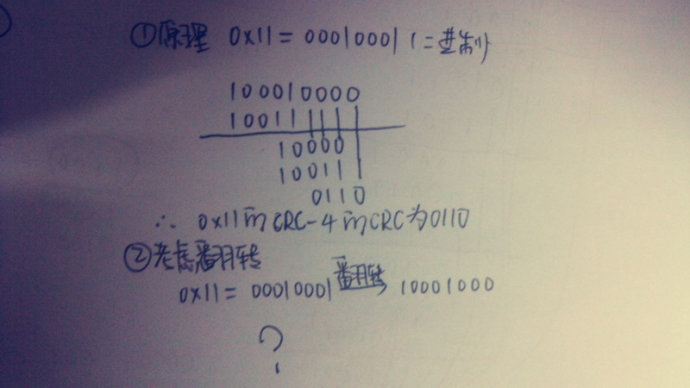 ①原理 0x11 = 00010001 (二进制)
100010000
10011
10000
10011
0110
∴ 0x11的CRC-4的CRC为0110
②考虑翻转
0x11 = 00010001 翻转 10001000
?